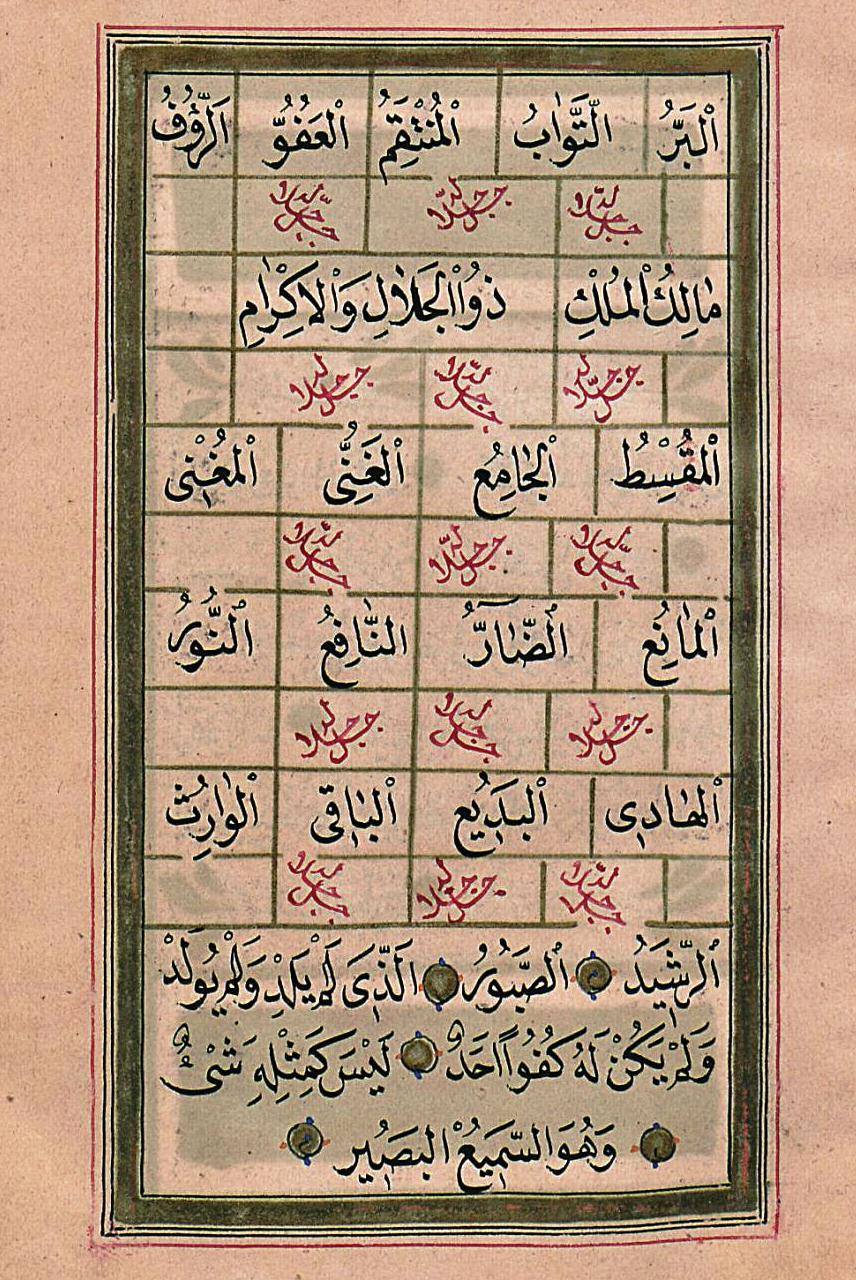 اَلْبَرُّ اَلتَّوَّابُ اَلْمُنْتَقِمُ اَلْعَفُوُّ اَلرَّؤُفُ
جل جلاله جل جلاله جل جلاله
مَالِكُ الْمُلْكِ ذُوالْجَلَالِ وَالْاِكْرَامِ
جل جلاله جل جلاله جل جلاله
اَلْمُقْسِطُ اَلْجَامِعُ اَلْغَنِىُّ اَلْمُغْنِى
جل جلاله جل جلاله جل جلاله
اَلْمَانِعُ اَلضَّآرُّ اَلنَّافِعُ اَلنُّورُ
جل جلاله جل جلاله جل جلاله
اَلْهَادِى اَلْبَدِيعُ اَلْبَاقِى اَلْوَارِثُ
جل جلاله جل جلاله جل جلاله
اَلرَّشِيدُ اَلصَّبُورُ اَلَّذِى لَمْ يَلِدْ وَلَمْ يُولَدْ
وَلَمْ يَكُنْ لَهُ كُفُوًا اَحَدٌ لَيْسَ كَمِثْلِهِ شَىْءٌ
وَهُوَ السَّمِيعُ الْبَصِيرُ